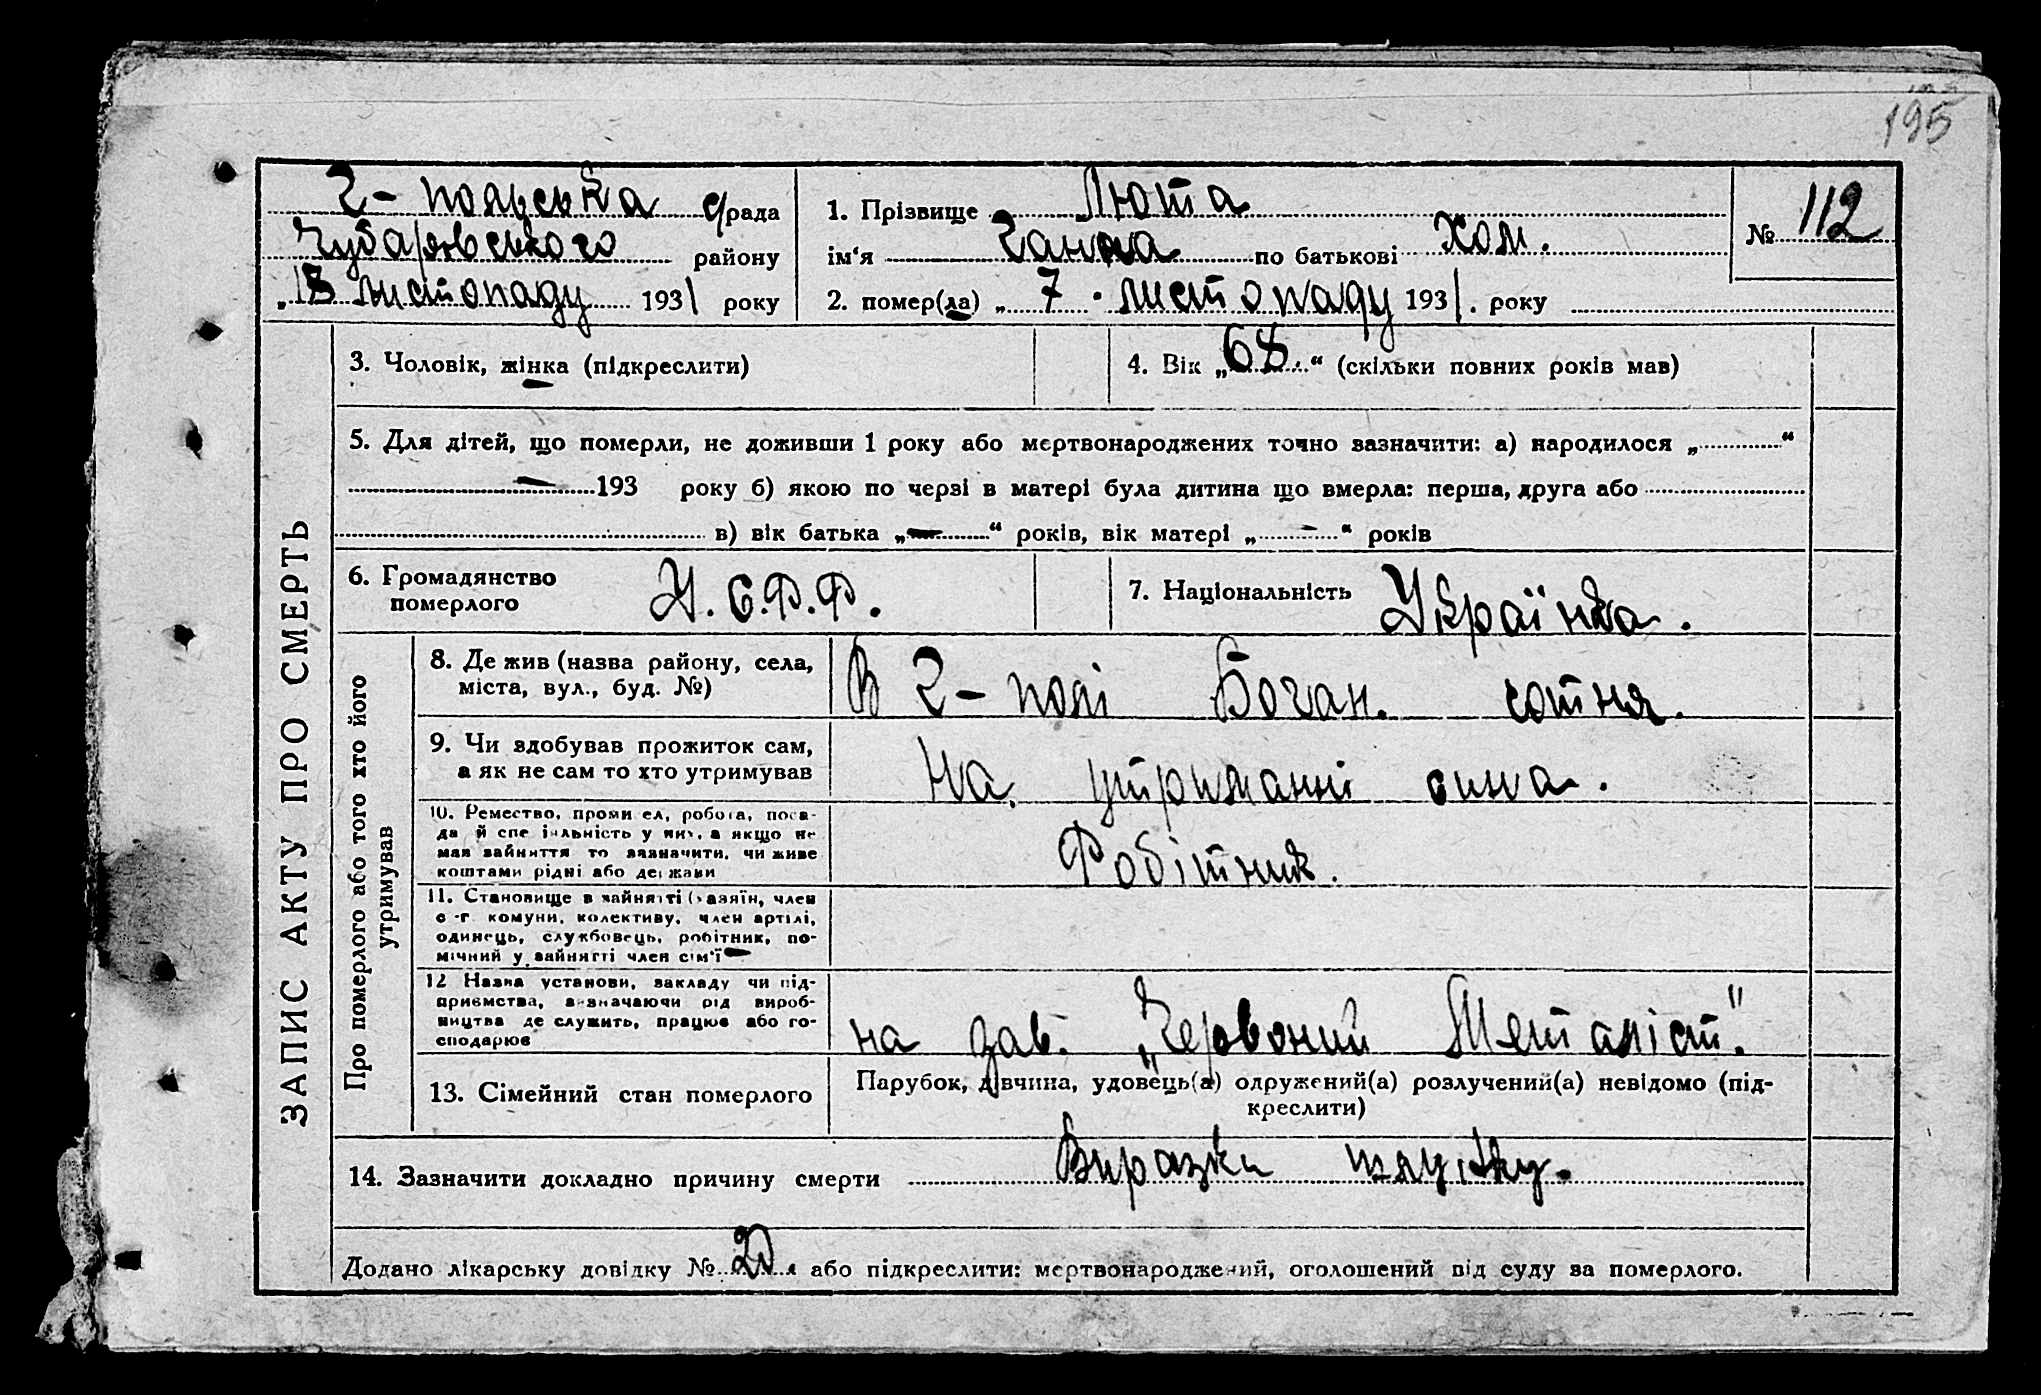 195
Г-польська с/рада
Чубарівського району
„ 13 листопаду 1931 року
1. Прізвище Люта
ім‘я Ганна по батькові Хом.
2. помер(ла) „ 7 . листопаду 1931. року
№ 112
ЗАПИС АКТУ ПРО СМЕРТЬ
3. Чоловік, жінка (підкреслити)
4. Вік „ 68 “ (скільки повних років мав)
5. Для дітей, що померли, не доживши 1 року або мертвонароджених точно зазначити: а) народилося „ “
193 року б) якою по черзі в матері була дитина що вмерла: перша, друга або
в) вік батька „ — “ років, вік матері „ - “ років
6. Громадянство
померлого
У.С.Р.Р.
7. Національність Українка.
Про померлого або того хто його
утримував
8. Де жив (назва району, села,
міста, вул., буд. №)
В Г-полі Бочан. сотня.
9. Чи здобував прожиток сам,
а як не сам то хто утримував
На утриманні сина.
10. Ремество, проми ел, робота, поса-
да й спе іяльність у них, а якщо не
мав зайняття то зазначити, чи живе
коштами рідні або держави
Робітник.
11. Становище в зайнятті (хазяїн, член
с -г. комуни, колективу, член артілі,
одинець, службовець, робітник, по-
мічний у зайнятті член сім‘ї
12 Назва установи, закладу чи під-
приємства, визначаючи рід вироб-
ництва де служить, працює або го-
сподарює
на зав. „Червоний Металіст".
13. Сімейний стан померлого
Парубок, дівчина, удовець(а) одружений(а) розлучений(а) невідомо (під-
креслити)
14. Зазначити докладно причину смерти Виразки шлунку.
Додано лікарську довідку № 20 або підкреслити: мертвонароджений, оголошений від суду за померлого.